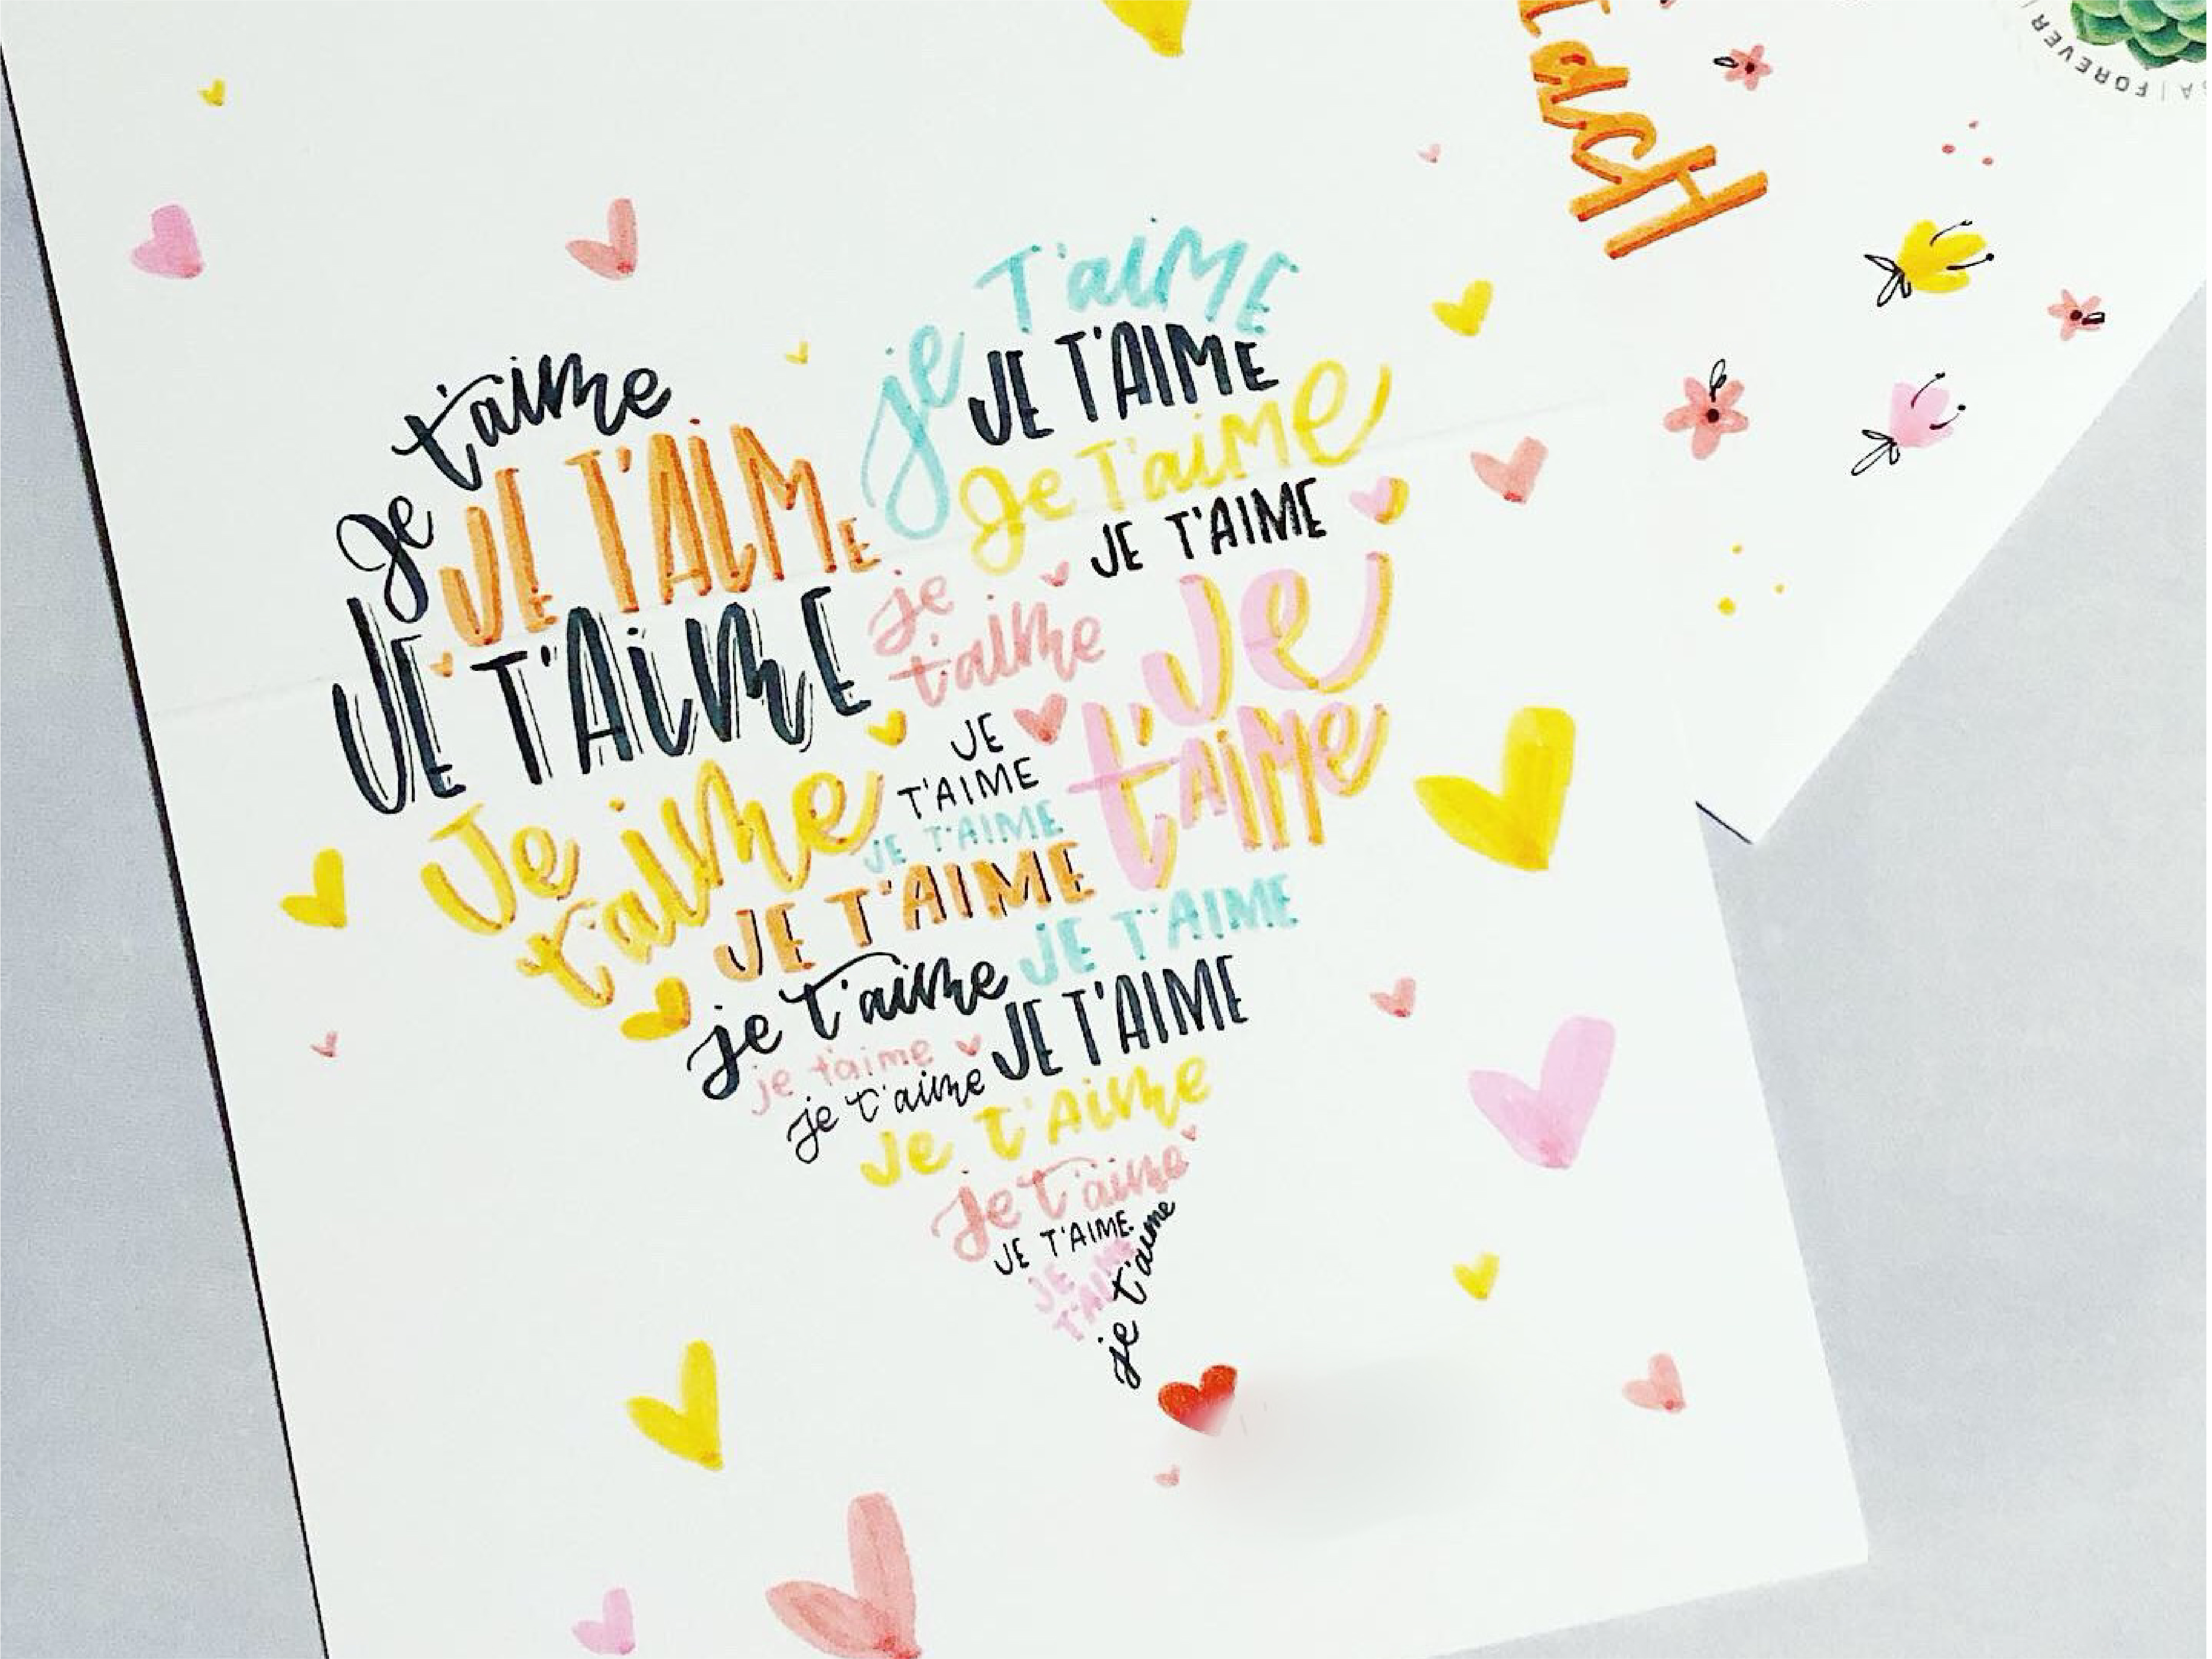 je T'aiME
JE T'AIME
Je t'aime
Je T'aiMe
JE T'AIME
JE T'AIME
je
t'aime
Je
t'AiMe
JE T'AiME
JE
T'AIME
Je
t'aime
JE T'AIME
JE T'AIME
JE T'AIME
je t'aime
JE T'AIME
je t'aime
je t'aime
Je t'Aime
je t'aime
JE T'AIME
JE
T'AIME
je t'aime
FOREVER